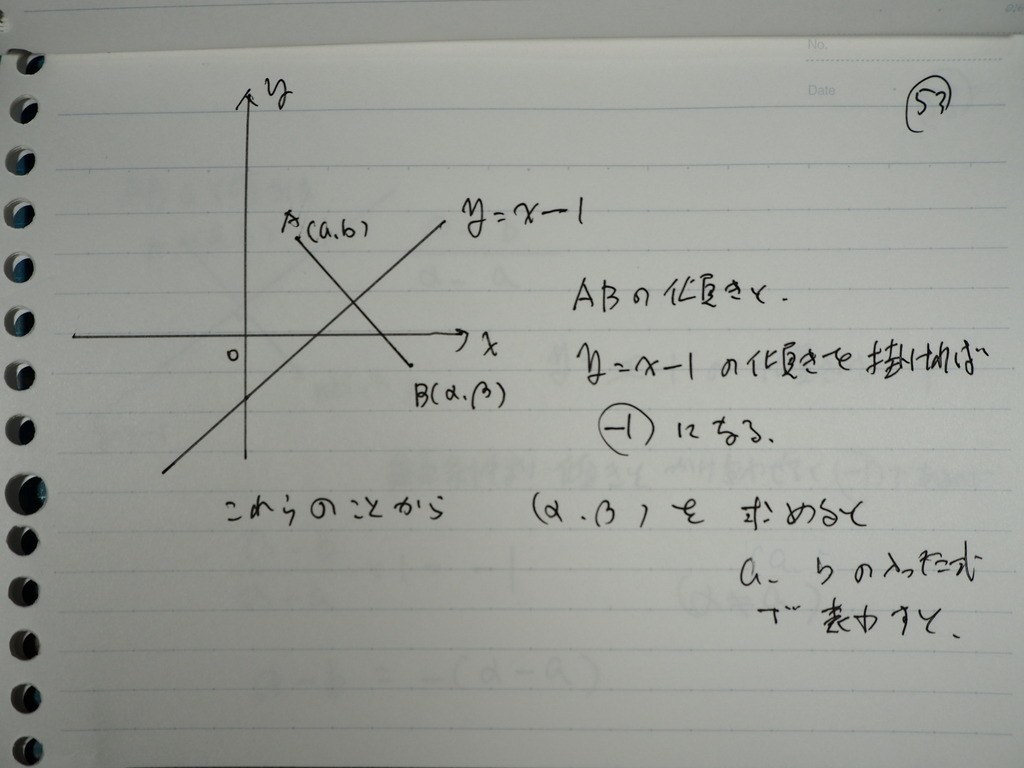 No.
Date
53
y
A(a.b)
y=x-1
x
o
B(α.β)
ABの傾きと.
y=x-1の傾きを掛ければ
-1になる.
これらのことから (α.β)を求めると
a. bの入った式
で表わすと.